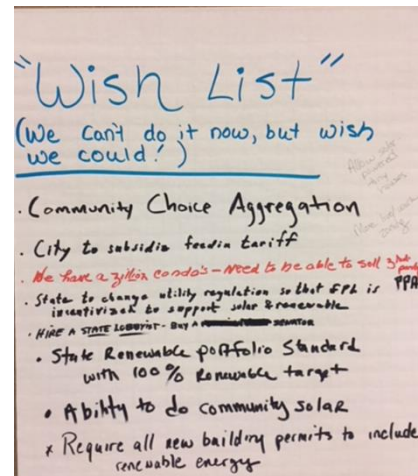 "Wish List"
(We can't do it now, but wish
we could!)
Allow solar
· Community Choice Aggregation
· City to subsidie feedin tariff
· We have a zillion condo's - Need to be able to sell 3rd party
PPA
· State to change utility regulation so that FPL is
incentivized to support solar & renewable
· HIRE A STATE LOBBYIST - BUY A SENATOR
• State Renewable portfolio Standard
with 100% Renewable target
• Ability to do community solar
* Require all new building permits to include
renewable energy